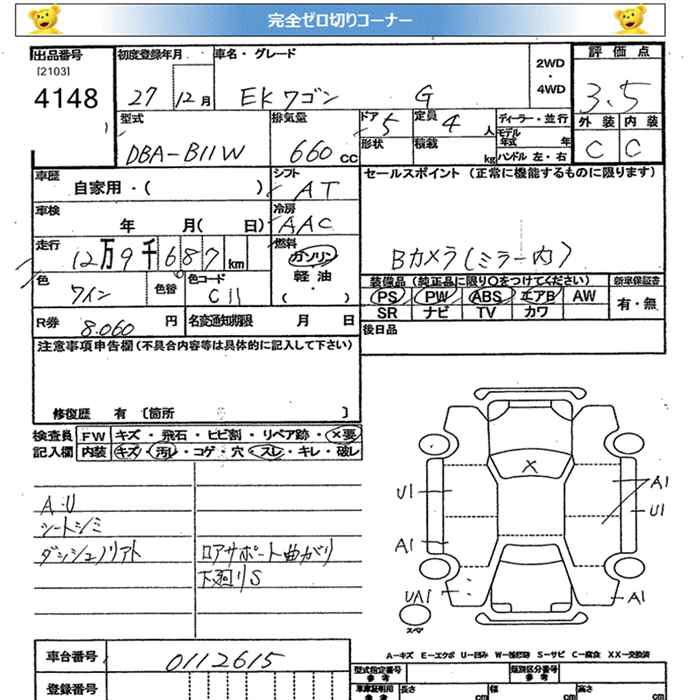 完全ゼロ切りコーナー
出品番号 初度登録年月 車名・グレード 2WD・4WD 評価点
[2103]
4148 27 12月 EKワゴン G 3.5
型式 排気量 ドア 5 定員 4人 ディーラー・並行 外装 内装
モデル年式 年
DBA-B11W 660cc 形状 積載 kg ハンドル 左・右 C C
車歴 シフト セールスポイント (正常に機能するものに限ります)
自家用・( ) AT
車検 冷房
年 月( 日) AAC
走行 燃料
12万9千687km ガソリン Bカメラ(ミラー内)
軽油
・
( )
色 色替 色コード 装備品 (純正品に限り○をつけてください) 新車保証書
ワイン C11 PS PW ABS エアB AW 有・無
SR ナビ TV カワ
R券 8.060円 名変通知期限 月 日 後日品
注意事項申告欄 (不具合内容等は具体的に記入して下さい)
修復歴 有 [箇所 ]
検査員 FW キズ・飛石・ヒビ割・リペア跡・×要
記入欄 内装 キズ・汚レ・コゲ・穴・スレ・キレ・破レ
A.U
シートシミ
ダッシュノリアト ロアサポート曲がり
下廻りS
X
U1 A1
U1
A1
UA1 A1
スペア
A-キズ E-エクボ U-凹み W-補修跡 S-サビ C-腐食 XX-交換済
車台番号 0112615 型式指定番号 参考 類別区分番号 参考
登録番号 車庫証明用 参考 長さ cm 幅 cm 高さ cm